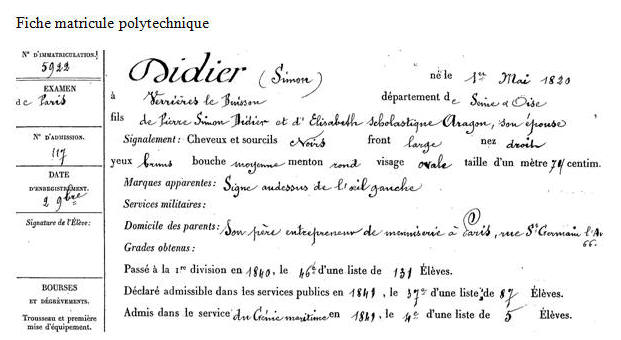 Fiche matricule polytechnique
N° D'IMMATRICULATION.
5922
EXAMEN
de Paris
N° D'ADMISSION.
117
DATE
D'ENREGISTREMENT.
2 9bre
Signature de l'Élève:
BOURSES
ET DÉGRÈVEMENTS.
Trousseau et première
mise d'équipement.
Didier (Simon) né le 1er Mai 1820
à Verrières le Buisson département de Seine & Oise
fils de Pierre Simon Didier et d'Elisabeth scholastique Aragon, son épouse
Signalement: Cheveux et sourcils Noirs front large nez droit
yeux bruns bouche moyenne menton rond visage ovale taille d'un mètre 74 centim.
Marques apparentes: Signe audessus de l'œil gauche
Services militaires:
Domicile des parents: Son père entrepreneur de menuiserie à Paris, rue St Germain l'Au
66.
Grades obtenus:
Passé à la 1re division en 1840, le 46e d'une liste de 131 Élèves.
Déclaré admissible dans les services publics en 1841, le 37e d'une liste de 87 Élèves.
Admis dans le service du Génie maritime en 1841, le 4e d'une liste de 5 Élèves.